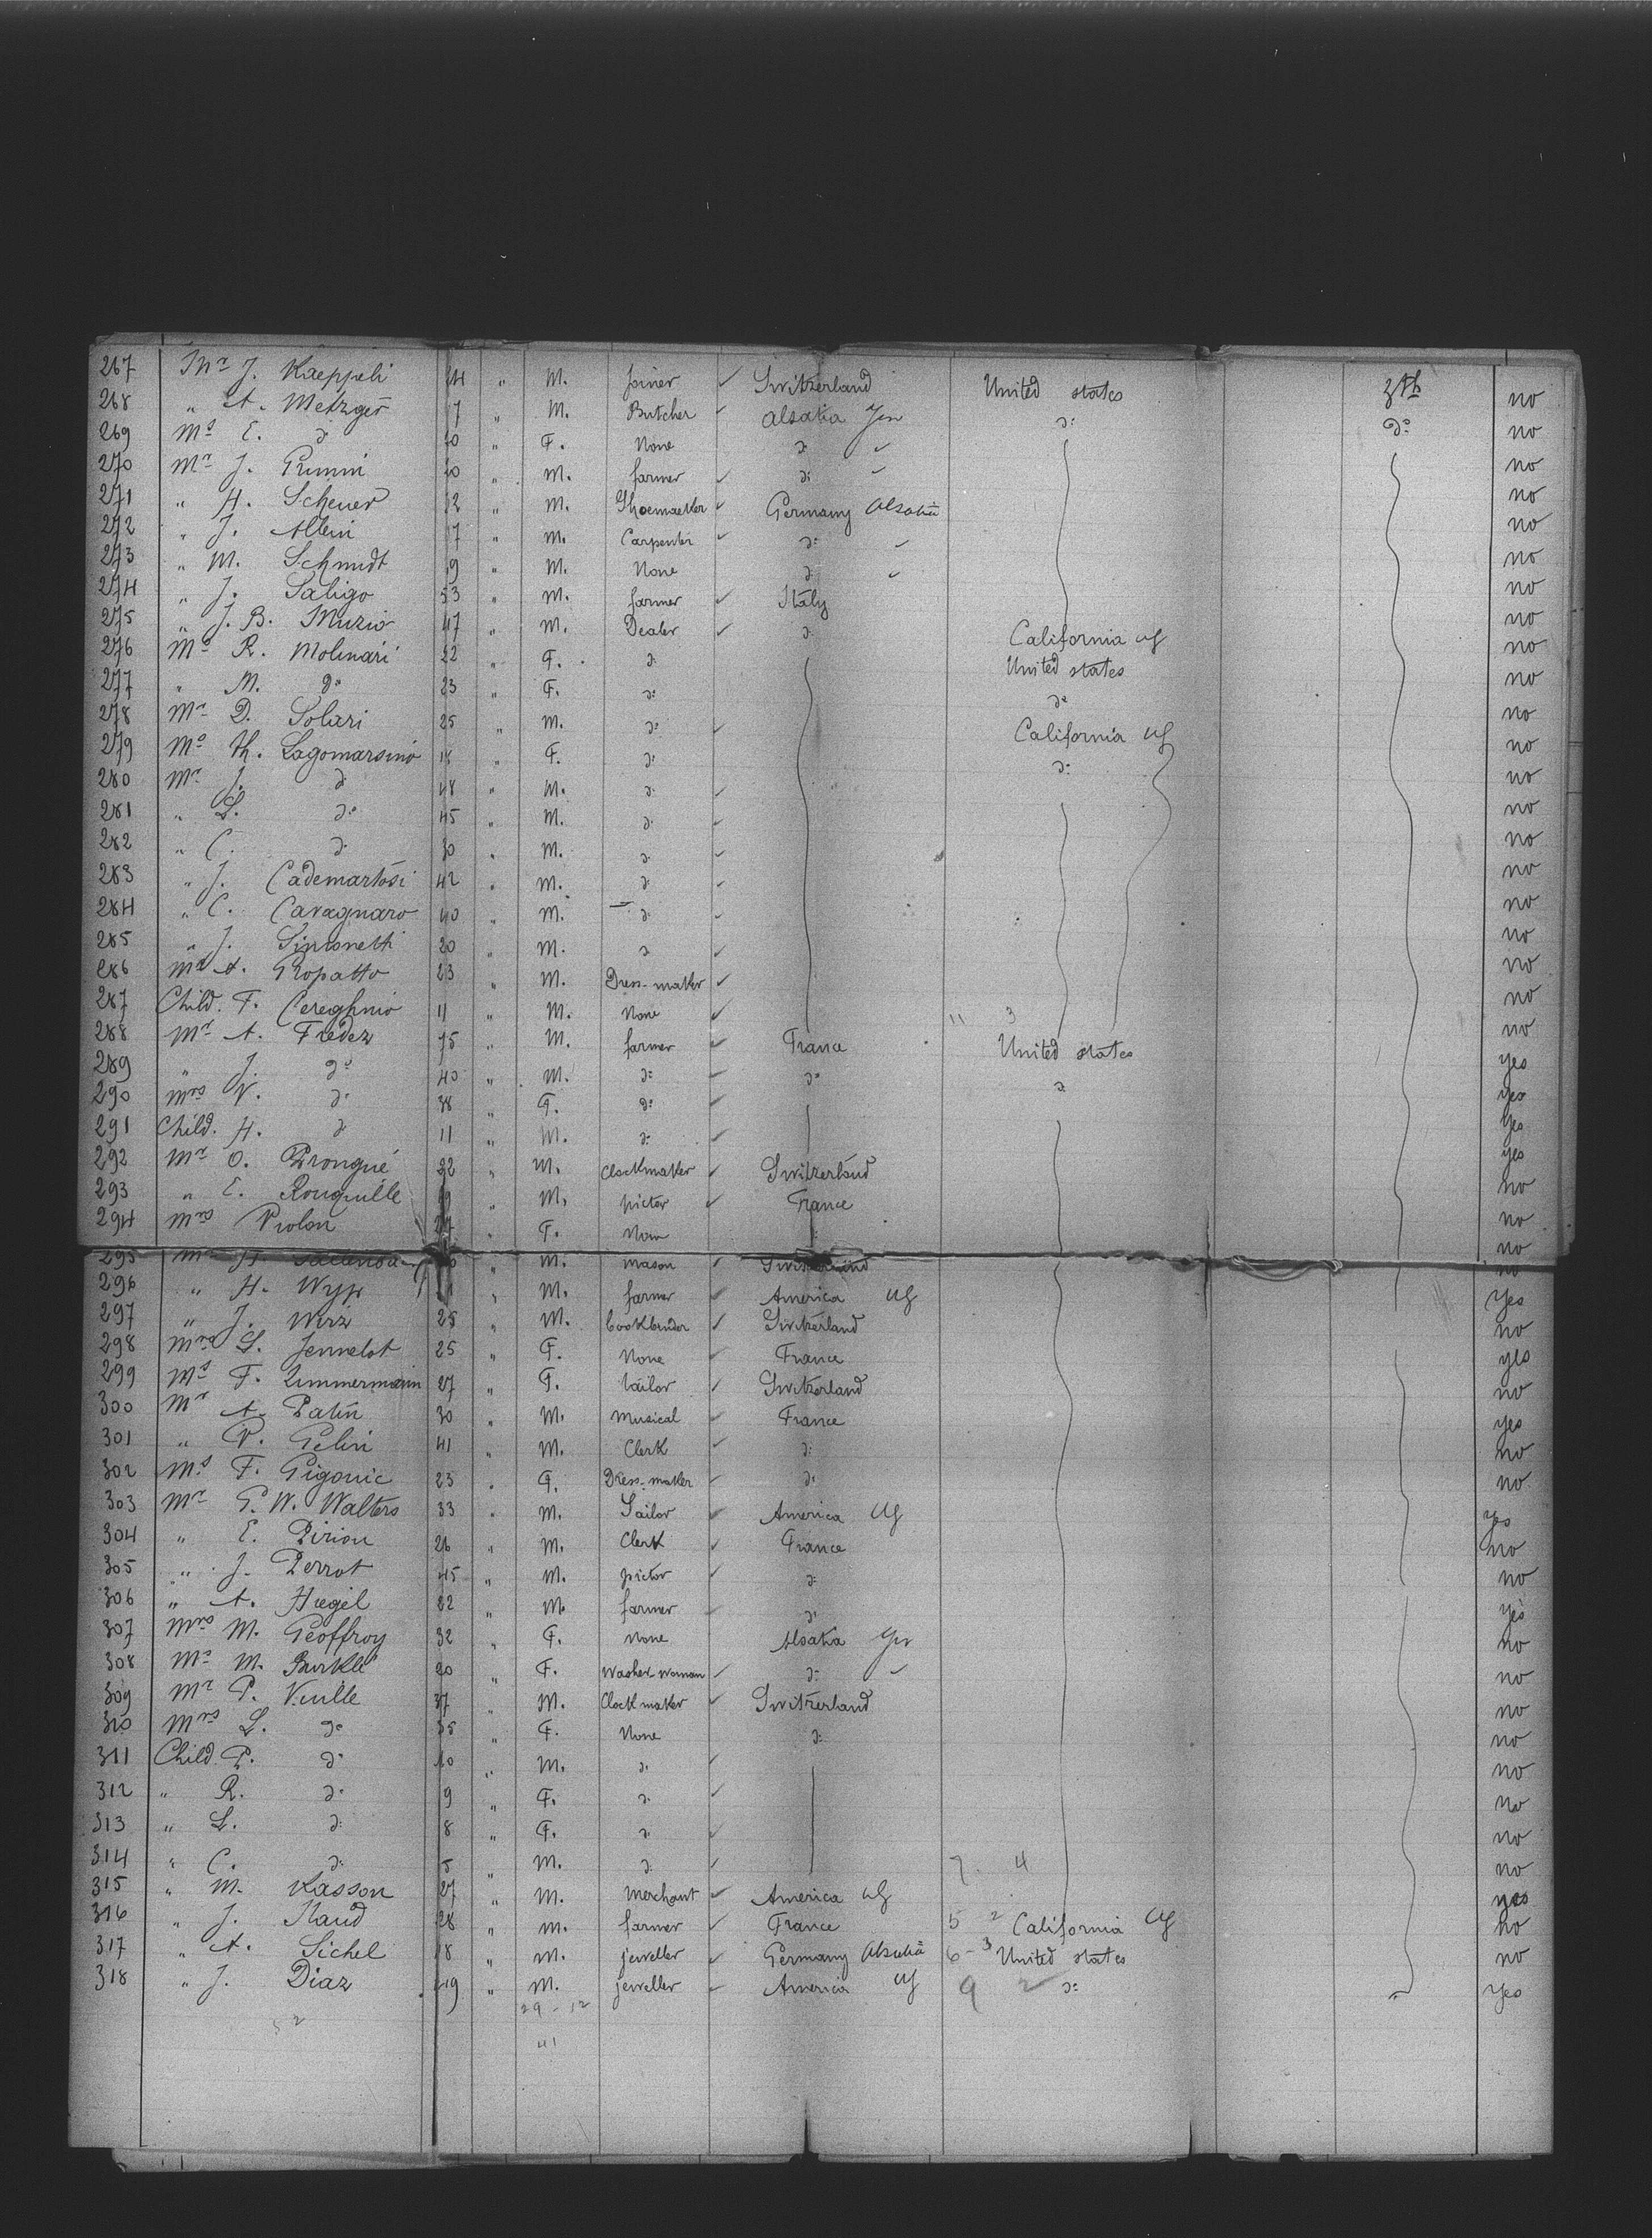 267 Mr J. Kaeppeli 24 " M. Joiner ✓ Switzerland United states 3th no
268 " A. Metzger 17 " M. Butcher ✓ Alsatia Ger do do no
269 Ms E. do 20 " F. None do ✓ no
270 Mr J. 20 " M. farmer ✓ do ✓ no
271 " H. Scheuer 32 " M. Shoemaeker ✓ Germany Alsatia no
272 " J. Allein 17 " M. Carpenter ✓ do ✓ no
273 " M. Schmidt 19 " M. None do ✓ no
274 " J. Saligo 53 " M. farmer ✓ Italy no
275 " J. B. Muzio 47 " M. Dealer ✓ do California US no
276 Ms R. Molinari 22 " F. do United states no
277 " M. do 23 " F. do do no
278 Mr D. Solari 25 " M. do ✓ California US no
279 Ms Th. Lagomarsino 18 " F. do do no
280 Mr J. do 48 " M. do ✓ no
281 " L. do 45 " M. do ✓ no
282 " C. do 30 " M. do ✓ no
283 " J. Cademartori 42 " M. do ✓ no
284 " C. Cavagnaro 40 " M. do ✓ no
285 " J. Simonetti 20 " M. do ✓ no
286 Ms A. Ropatto 23 " M. Dress-maker ✓ no
287 Child. F. Cereghino 11 " M. None ✓ 11 3 no
288 Mr A. Fredez 75 " M. farmer ✓ France United states yes
289 " J. do 40 " M. do ✓ do do yes
290 Mrs V. do 38 " F. do ✓ yes
291 Child. H. do 11 " M. do ✓ yes
292 Mr O. Prongué 22 " M. Clockmaker ✓ Switzerland no
293 " E. Rouquille 19 " M. pictor ✓ France no
294 Mrs Violon " F. None no
295 Mr H. " M. Mason ✓ Switzerland no
296 " H. Wyss " M. farmer ✓ America US Yes
297 " J. Wirz 25 " M. bookbinder ✓ Switzerland no
298 Mrs L. Jennelot 25 " F. None ✓ France yes
299 Ms F. Zimmermann 27 " F. tailor ✓ Switzerland no
300 Mr A. Patin 30 " M. Musical ✓ France yes
301 " V. Gelin 41 " M. Clerk ✓ do no
302 Ms F. Gigonic 23 " F. Dress-maker ✓ do no
303 Mr G. W. Walters 33 " M. Sailor ✓ America US yes
304 " E. Pirion 26 " M. Clerk ✓ France no
305 " J. Perrot 45 " M. pictor ✓ do no
306 " A. Hægel 22 " M. farmer ✓ do yes
307 Mrs M. Geoffroy 32 " F. None Alsatia Ger no
308 Ms M. Burklé 20 " F. Washer woman ✓ do ✓ no
309 Mr P. Vuille 37 " M. Clockmaker ✓ Switzerland no
310 Mrs L. do 35 " F. None do no
311 Child P. do 10 " M. do ✓ no
312 " R. do 9 " F. do ✓ no
313 " L. do 8 " F. do ✓ no
314 " C. do 5 " M. do ✓ 7. 4 no
315 " M. Kasson 27 " M. Merchant ✓ America US yes
316 " J. Staud 28 " M. farmer ✓ France 5 2 California US no
317 " A. Sichel 18 " M. jeweller ✓ Germany Alsatia 6-3 United states no
318 " J. Diaz 49 " M. jeweller ✓ America US 9 2 do Yes
29-12
41